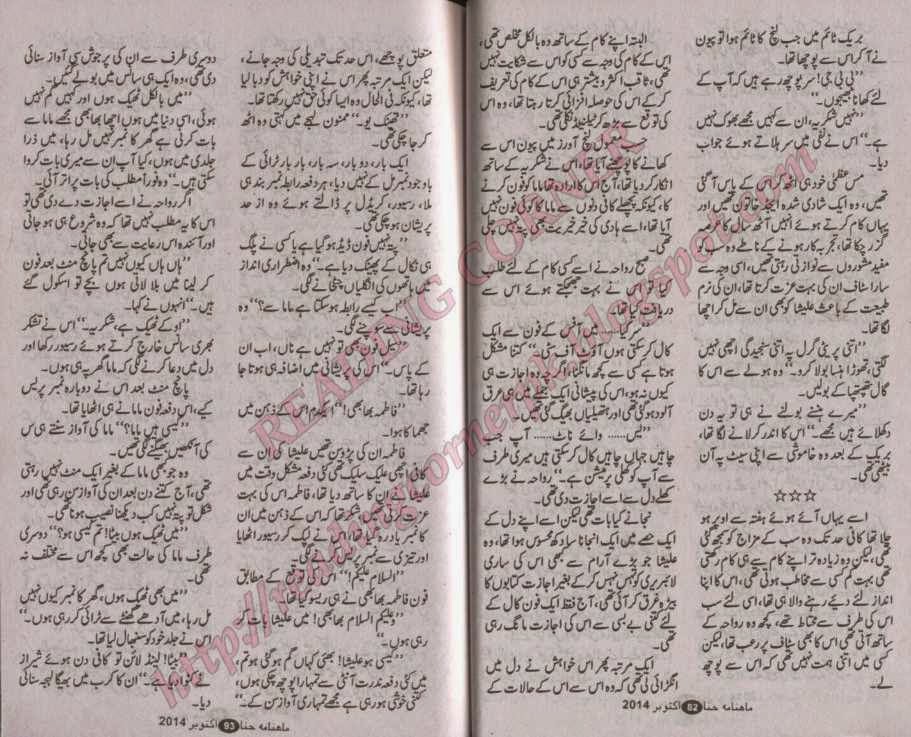 بریک ٹائم میں جب لنچ کا ٹائم ہوا تو پیون
نے آ کر اس سے پوچھا تھا۔
"بی بی جی! سر پوچھ رہے ہیں کہ آپ کے
لئے کھانا بھیجوں۔"
"نہیں شکریہ، ان سے کہیں مجھے بھوک نہیں
ہے۔" اس نے نفی میں سر ہلاتے ہوئے جواب
دیا۔
مس عظمیٰ خود ہی اٹھ کر اس کے پاس آ گئی
تھیں، وہ ایک شادی شدہ ایجڈ خاتون تھیں اور
یہاں کام کرتے ہوئے انہیں آٹھ سال کا عرصہ
گزر چکا تھا، تجربہ کار ہونے کے ناطے وہ سب کو
مفید مشوروں سے نوازتی رہتی تھیں، اسی وجہ سے
سارا سٹاف ان کی بہت عزت کرتا تھا، ان کی نرم
طبیعت کے باعث علیشا کو بھی ان سے مل کر اچھا
لگا تھا۔
"اتنی پریٹی گرل پہ اتنی سنجیدگی اچھی نہیں
لگتی، تھوڑا ہنسا بولا کرو۔" وہ ہولے سے اس کا
گال تھپتھپا کے بولیں۔
"میرے ہنسنے بولنے نے ہی تو یہ دن
دکھلائے ہیں مجھے۔" اس کا اندر کرلانے لگا تھا،
بریک کے بعد وہ خاموشی سے اپنی سیٹ پہ آن
بیٹھی تھی۔
☆☆☆
اسے یہاں آئے ہوئے ہفتہ سے اوپر ہو
چلا تھا کافی حد تک وہ سب کے مزاج کو سمجھ گئی
تھی، لیکن وہ زیادہ تر اپنے کام سے ہی کام رکھتی
تھی بہت کم کسی سے مخاطب ہوتی تھی، اس کا اپنا
انداز لئے دیئے رہنے والا ہی تھا، اسی لئے سب
اس کی طرف سے محتاط تھے، کچھ وہ رواحہ کے
ساتھ آتی تھی اس کا بھی سٹاف پر رعب تھا، لیکن
کسی میں اتنی ہمت نہیں تھی کہ اس سے پوچھ
لے۔
البتہ اپنے کام کے ساتھ وہ بالکل مخلص تھی،
اس کے کام کی وجہ سے کسی کو اس سے شکایت نہیں
تھی، ثاقب اکثر و بیشتر ہی اس کے کام کی تعریف
کر کے اس کی حوصلہ افزائی کرتا رہتا تھا، وہ اس
کی توقع سے بڑھ کر ٹیلنٹڈ نکلی تھی۔
حسب معمول لنچ آورز میں پیون اس سے
کھانے کا پوچھنے آیا تھا، اس نے شکریہ کے ساتھ
انکار کر دیا تھا، آج اس کا ارادہ تھا ماما کو فون کرنے
کا، کیونکہ پچھلے کافی دنوں سے ماما کا کوئی فون نہیں
آیا تھا، اسے ہادی کی خیر خیریت بھی پتہ نہیں چلی
تھی۔
صبح رواحہ نے اسے کسی کام کے لئے طلب
کیا تو اس نے بہت جھجکتے ہوئے اس سے
دریافت کیا تھا۔
"سر کیا...... میں آفس کے فون سے ایک
کال کر سکتی ہوں آؤٹ آف سٹی۔" کتنا مشکل
ہوتا ہے کسی سے کچھ مانگنا، اگرچہ وہ اجازت ہی
کیوں نہ ہو، اس کی پیشانی ایک جملے میں ہی عرق
آلود ہو گئی تھی اور ہتھیلیاں بھیگ گئی تھیں۔
"یس...... وائے ناٹ...... آپ جب
چاہیں جہاں چاہیں کال کر سکتی ہیں میری طرف
سے آپ کو کھلی پرمیشن ہے۔" رواحہ نے بڑے
کھلے دل سے اسے اجازت دی تھی۔
نجانے کیا بات تھی لیکن اسے اپنے دل کے
ایک حصے میں ایک انجانا سا دکھ محسوس ہوا تھا، وہ
علیشا جو بڑے آرام سے بھی اس کی ساری
لائبریری کو تہس نہس کر کے بغیر اجازت کتابوں کا
بیڑہ غرق کر آئی تھی، آج فقط ایک فون کال کے
لئے کتنی بے بسی سے اس کی اجازت مانگ رہی
تھی۔
ایک مرتبہ پھر اس خواہش نے دل میں
انگڑائی لی تھی کہ وہ اس سے اس کے حالات کے
ماہنامہ حنا 82 اکتوبر 2014
متعلق پوچھے، اس حد تک تبدیلی کی وجہ جانے،
لیکن ایک مرتبہ پھر اس نے اپنی خواہش کو دبا لیا
تھا، کیونکہ فی الحال وہ ایسا کوئی حق نہیں رکھتا تھا۔
"تھینک یو۔" ممنون لہجے میں کہتی وہ اٹھ
کر جا چکی تھی۔
ایک بار، دو بار، سہ بار، بار بار ٹرائی کے
باوجود نمبر مل کے نہیں دیا، ہر دفعہ رابطہ نمبر بند ہی
ملا، رسیور، کریڈل پر ڈالتے ہوئے وہ از حد
پریشان ہو چکی تھی۔
"پتہ نہیں فون ڈیڈ ہو گیا ہے یا کسی نے پلگ
ہی نکال کے پھینک دیا ہے۔" وہ اضطراری انداز
میں ہاتھوں کی انگلیاں چٹخانے لگی۔
"اب کیسے رابطہ ہو سکتا ہے ماما سے؟" وہ
پریشانی سے سوچنے لگی۔
"سیل فون بھی تو نہیں ہے ناں، اب ان
کے پاس۔" اس کی پریشانی میں اضافہ ہی ہوتا جا
رہا تھا۔
"فاطمہ بھابھی!" ایکدم اس کے ذہن میں
جھماکا ہوا۔
فاطمہ ان کی پڑوسن تھیں علیشا کی ان سے
کافی اچھی علیک سلیک تھی کئی دفعہ مشکل وقت میں
علیشا نے ان کا ساتھ دیا تھا، فاطمہ اس کی بہت
عزت کرتی تھیں، شکر تھا کہ اس کے ذہن میں ان
کا نمبر یاد رہ گیا تھا، اس نے لپک کر رسیور اٹھایا
اور تیزی سے نمبر پش کرنے لگی۔
"السلام علیکم!" اس کی توقع کے مطابق
فون فاطمہ بھابھی نے ہی ریسیو کیا تھا۔
"وعلیکم السلام بھابھی! میں علیشا بات کر
رہی ہوں۔"
"کیسی ہو علیشا! بھئی کہاں گم ہو گئی ہو تم،
میں کئی دفعہ ندرت آنٹی سے تمہارا پوچھ چکی ہوں،
کتنی خوشی ہو رہی ہے مجھے تمہاری آواز سن کے۔"
دوسری طرف سے ان کی پرجوش سی آواز سنائی
دی تھی، وہ ایک ہی سانس میں بولے گئیں۔
"میں بالکل ٹھیک ہوں اور کہیں گم نہیں
ہوئی، اسی دنیا میں ہوں اچھا بھابھی مجھے ماما سے
بات کرنی ہے گھر کا نمبر نہیں مل رہا، میں ذرا
جلدی میں ہوں، کیا آپ ان سے میری بات کروا
سکتی ہیں۔" وہ فوراً مطلب کی بات پر اتر آئی۔
اگر رواحہ نے اسے اجازت دے دی تھی تو
اس کا یہ مطلب نہیں تھا کہ وہ شروع ہی ہو جاتی
اور آئندہ اس رعایت سے بھی جاتی۔
"ہاں ہاں کیوں نہیں تم پانچ منٹ بعد فون
کر لینا میں بلا لاتی ہوں بچے تو اسکول گئے
ہیں۔" انہوں نے کہا۔
"اوکے ٹھیک ہے، شکریہ۔" اس نے تشکر
بھری سانس خارج کرتے ہوئے رسیور رکھا اور
دل میں دعا کرنے لگی کہ ماما گھر پہ ہی ہوں۔
پانچ منٹ بعد اس نے دوبارہ نمبر پریس
کیے، اس دفعہ فون ماما نے ہی اٹھایا تھا۔
"کیسی ہیں ماما؟" ماما کی آواز سنتے ہی اس
کی آنکھیں بھیگنے لگی تھیں۔
وہ جو کبھی ماما کے بغیر ایک منٹ نہیں رہتی
تھی، آج کتنے دن بعد ان کی آواز سن رہی تھی اور
شکل تو پتہ نہیں کب دیکھنا نصیب ہونا تھی۔
"میں ٹھیک ہوں بیٹا! تم کیسی ہو؟" دوسری
طرف ماما کی حالت بھی کچھ اس سے مختلف نہ
تھی۔
"میں بھی ٹھیک ہوں، گھر کا نمبر کیوں نہیں
مل رہا، میں آدھے گھنٹے سے ٹرائی کر رہی ہوں۔"
اس نے جلد خود کو سنبھال لیا تھا۔
"بیٹا! لینڈ لائن تو کافی دن ہوئے شیراز
نے کٹوا دیا ہے۔" ان کا کرب میں بھیگا لہجہ سنائی
دیا۔
ماہنامہ حنا 93 اکتوبر 2014
READING CORNER
http://readingcornerpk.blogspot.com